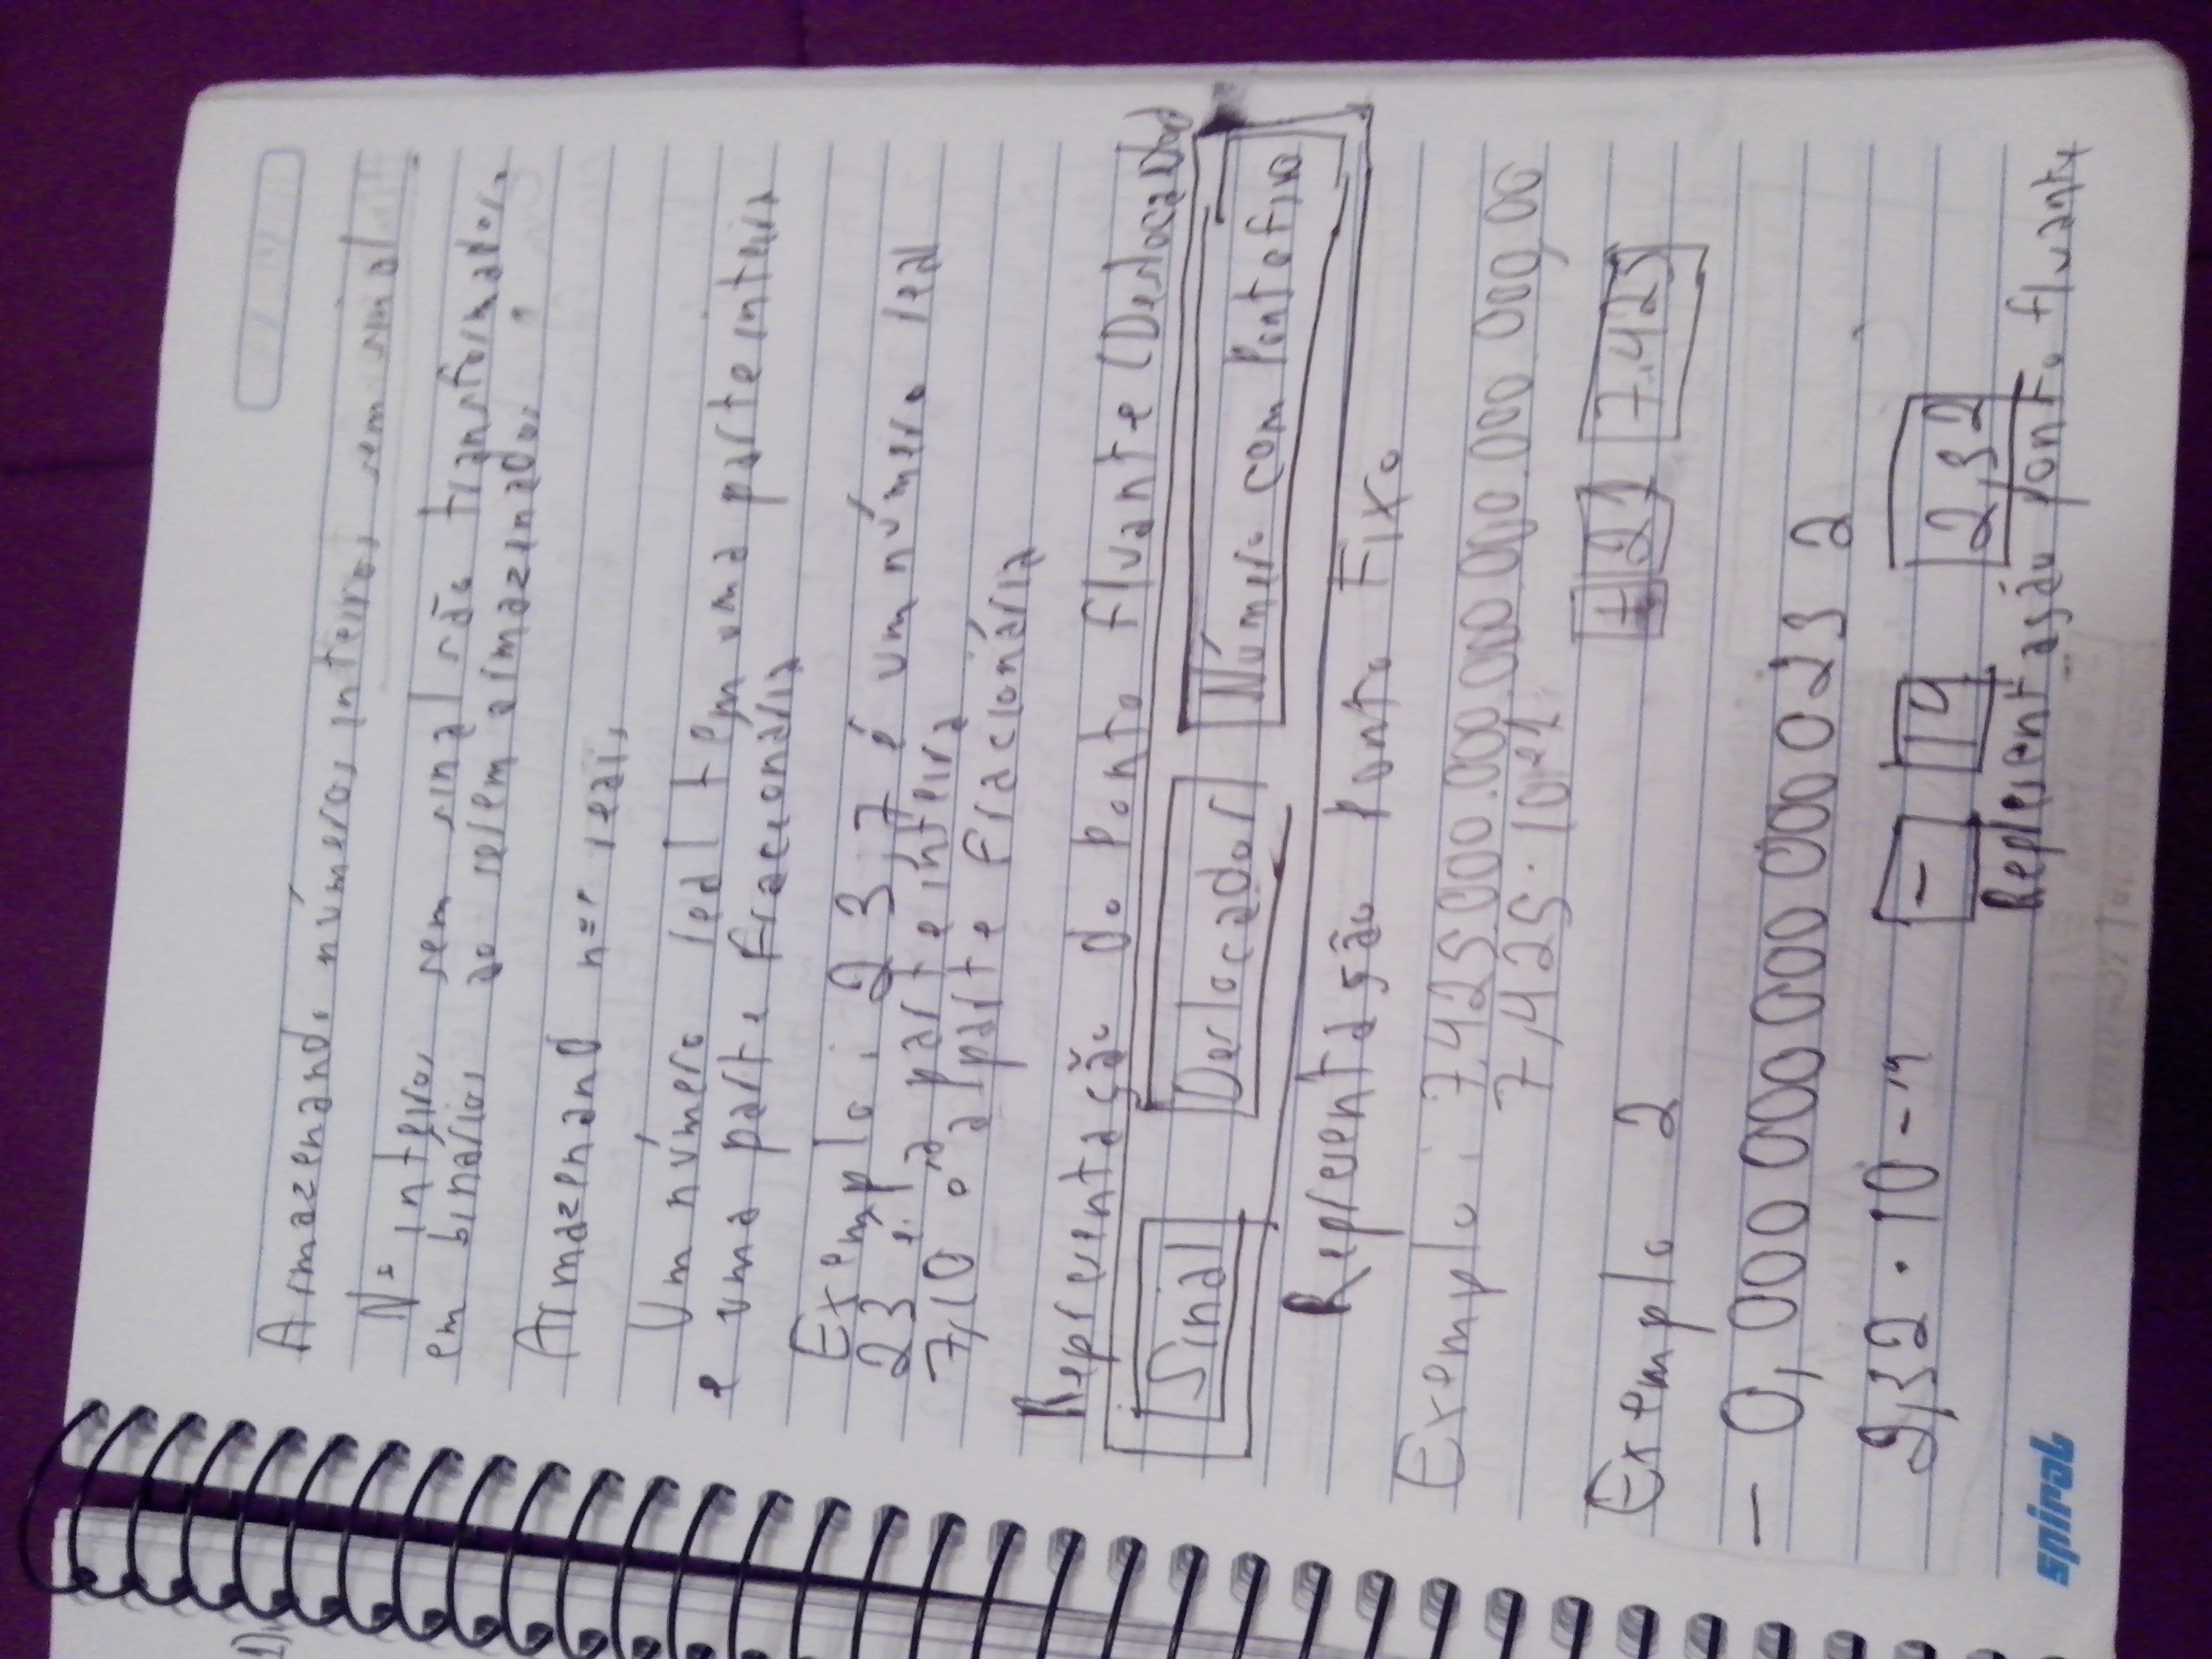 Armazenando números inteiros sem sinal
Nºs inteiros sem sinal são transformados
em binários ao serem armazenados
Armazenand nºs reais
Um número real tem uma parte inteira
e uma parte fracionária
Exemplo: 23,7 é um número real
23 é a parte inteira
7,10 é a parte fracionária
Representação do Ponto Fluante (Deslocador)
Sinal Deslocador Número com Ponto Fixo
Representação Ponto Fixo
Exemplo: 7.425.000.000.000.000.000.000,00
7,425 · 10 21
+ 21 7.425
Exemplo 2
- 0,000 000 000 000 0 23 2
2,32 · 10 - 14
- 14 2,32
Representação ponto fluante
spiral